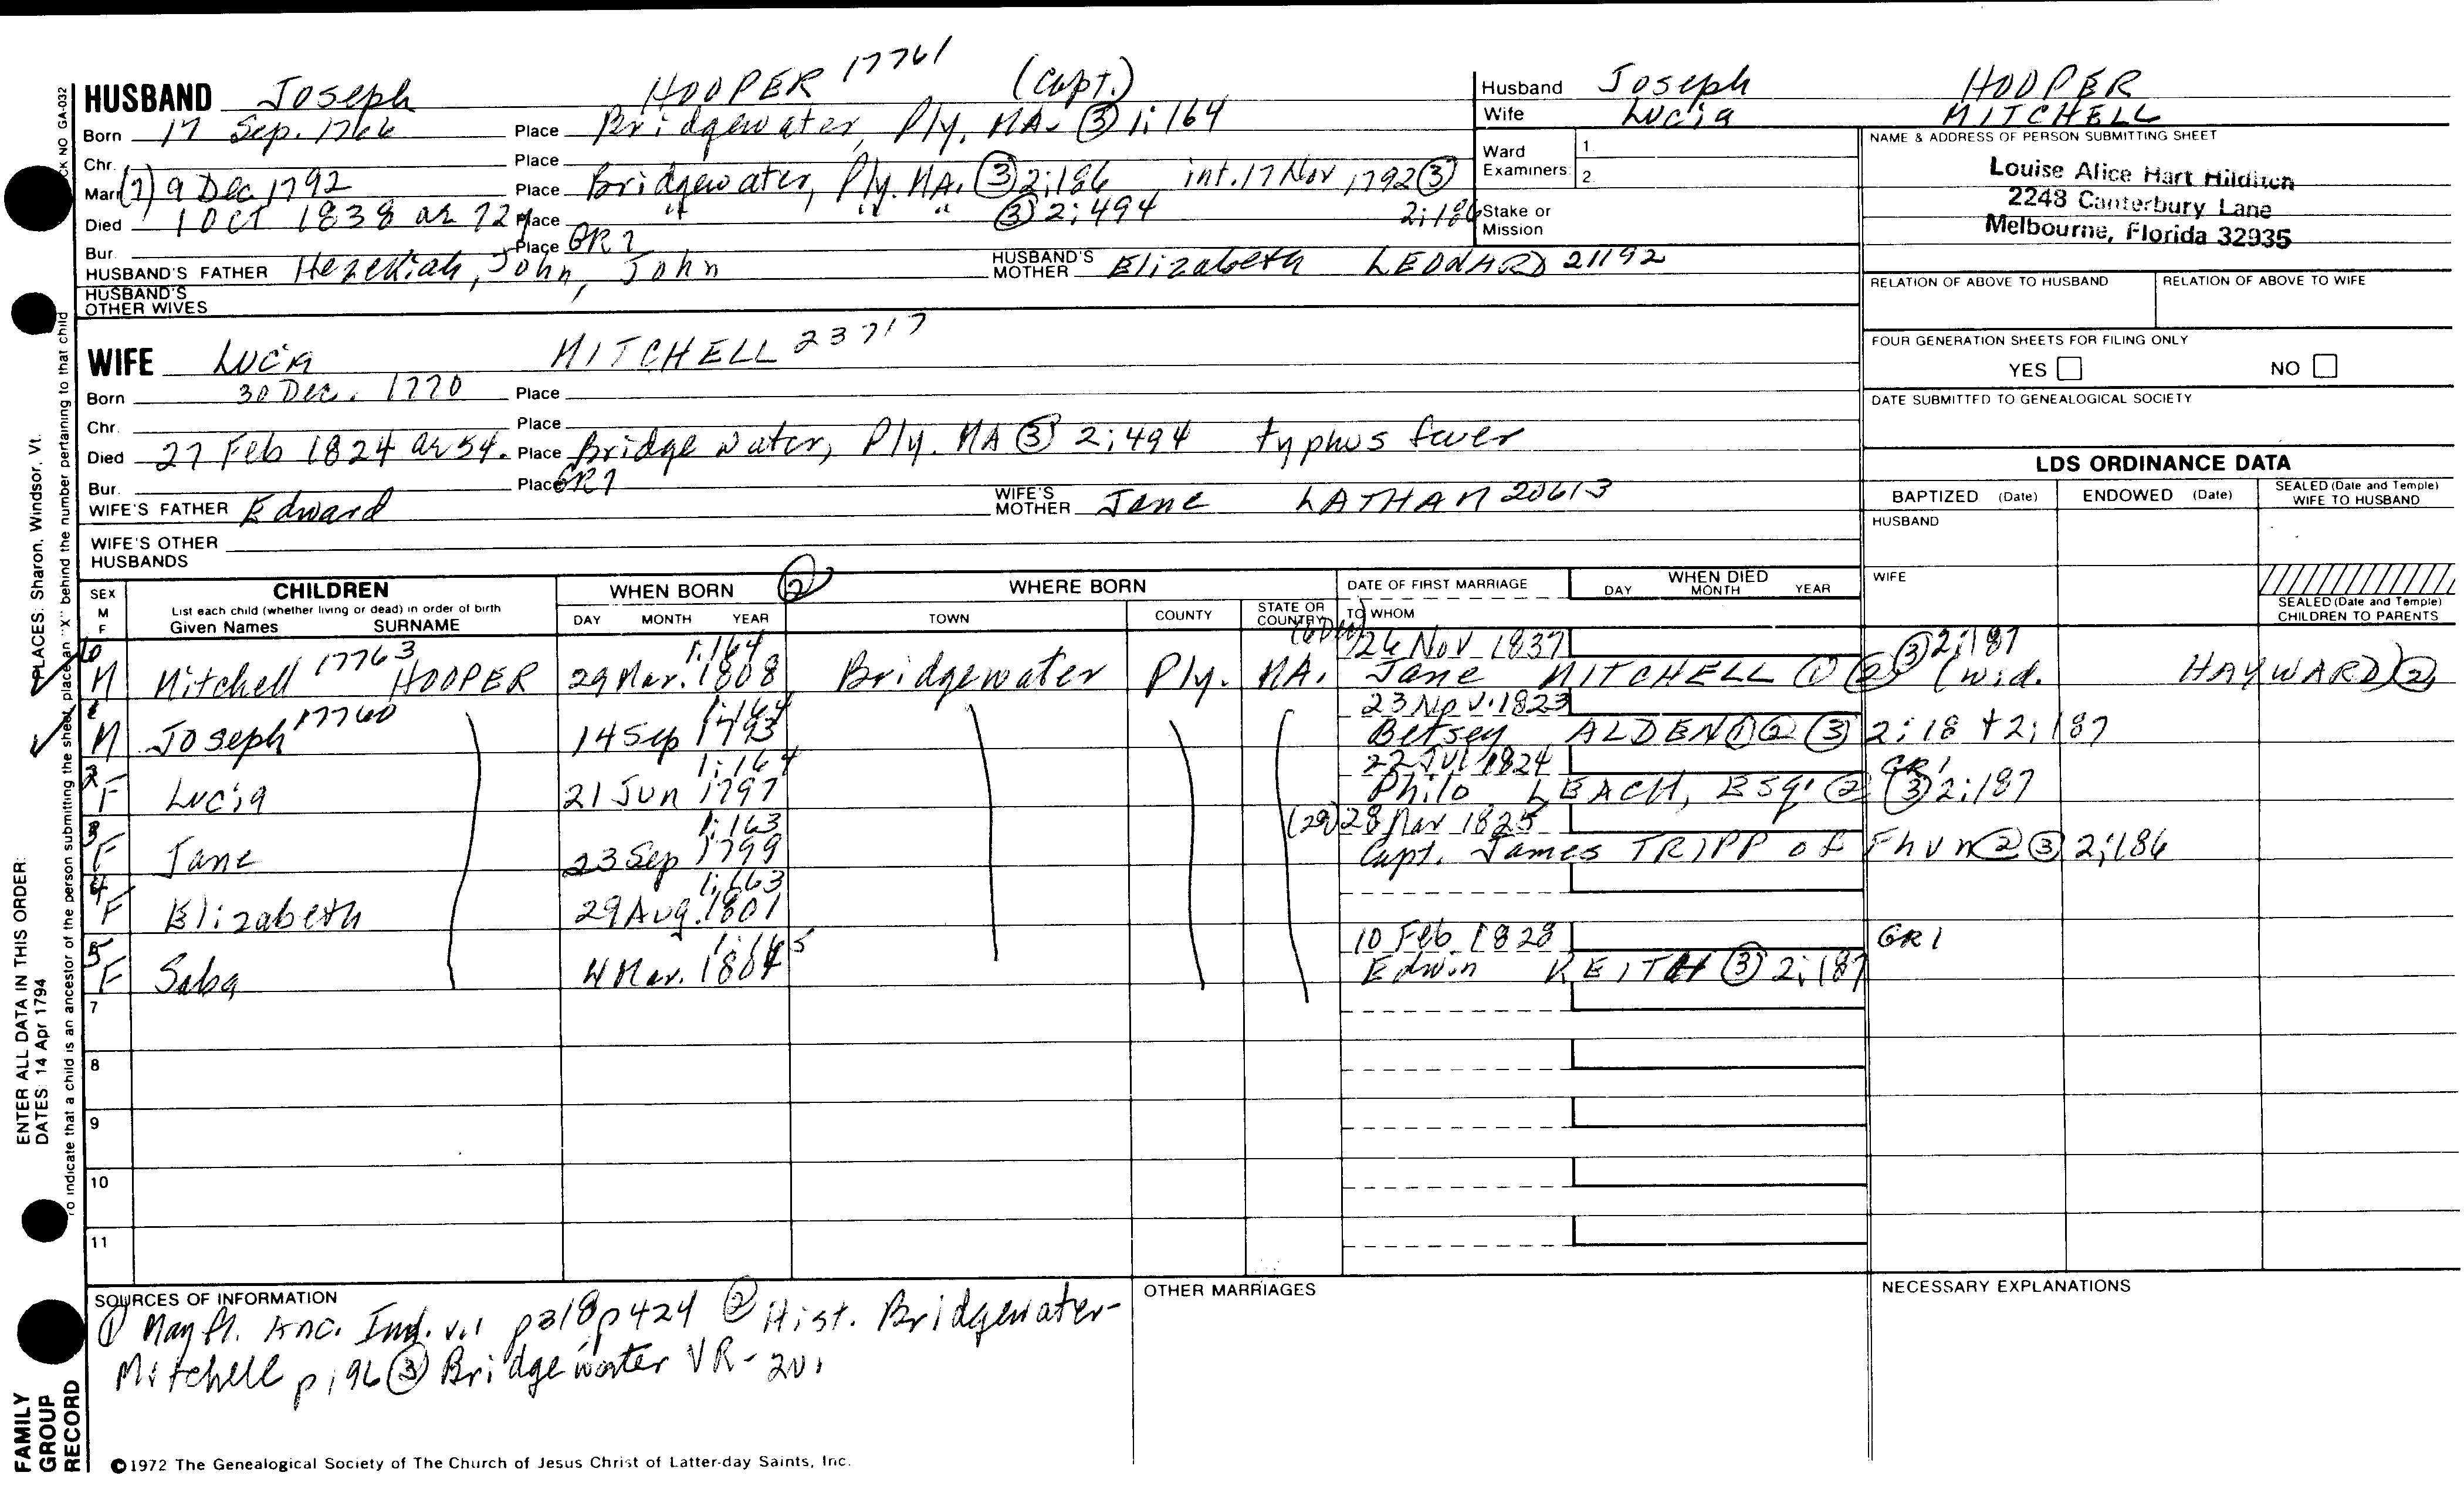 HUSBAND Joseph HOOPER 17761 (Capt.)
Born 17 Sep. 1766 Place Bridgewater, Ply. MA. ③ 1;164
Chr. Place
Mar (7) 9 Dec 1792 Place Bridgewater, Ply. MA. ③ 2;186, int. 17 Nov 1792 ③ 2;186
Died 1 OCT 1838 ae 72y Place " " " ③ 2;494
Bur. Place GR7
HUSBAND'S FATHER Hezekiah, John, John HUSBAND'S MOTHER Elizabeth LEONARD 21192
HUSBAND'S OTHER WIVES
WIFE Lucia MITCHELL 23717
Born 30 Dec. 1770 Place
Chr. Place
Died 27 Feb 1824 ae 54. Place Bridgewater, Ply. MA ③ 2;494 typhus fever
Bur. Place GR7
WIFE'S FATHER Edward WIFE'S MOTHER Jane LATHAM 20613
WIFE'S OTHER HUSBANDS
Husband Joseph HOOPER
Wife Lucia MITCHELL
Ward Examiners 1. 2.
Stake or Mission
NAME & ADDRESS OF PERSON SUBMITTING SHEET
Louise Alice Hart Hilditch
2248 Canterbury Lane
Melbourne, Florida 32935
RELATION OF ABOVE TO HUSBAND RELATION OF ABOVE TO WIFE
FOUR GENERATION SHEETS FOR FILING ONLY
YES NO
DATE SUBMITTED TO GENEALOGICAL SOCIETY
LDS ORDINANCE DATA
BAPTIZED (Date) ENDOWED (Date) SEALED (Date and Temple) WIFE TO HUSBAND
HUSBAND
WIFE
SEALED (Date and Temple) CHILDREN TO PARENTS
SEX M F CHILDREN WHEN BORN ② WHERE BORN DATE OF FIRST MARRIAGE WHEN DIED
List each child (whether living or dead) in order of birth
Given Names SURNAME DAY MONTH YEAR TOWN COUNTY STATE OR COUNTRY TO WHOM DAY MONTH YEAR
6 M Mitchell 17763 HOOPER 29 Mar. 1808 1;164 Bridgewater Ply. MA. 26 Nov 1837
Jane MITCHELL ① ② ③ 2;187 (wid. HAYWARD) ②
1 M Joseph 17760 14 Sep 1793 1;164 23 Nov. 1823
Betsey ALDEN ① ② ③ 2;18 + 2;187
2 F Lucia 21 Jun 1797 1;164 22 Jul 1824 GR1
Philo LEACH, Esq. ② ③ 2;187
3 F Jane 23 Sep 1799 1;163 (29) 28 Mar 1825
Capt. James TRIPP of Fhvn ② ③ 2;186
4 F Elizabeth 29 Aug. 1801 1;163
5 F Saba 4 Mar. 1804 1;165 10 Feb 1828 GR1
Edwin KEITH ③ 2;187
7
8
9
10
11
SOURCES OF INFORMATION
① Mayfl. Anc. Ind. p318 p424 ② Hist. Bridgewater-
Mitchell p196 ③ Bridgewater VR- 2v.
OTHER MARRIAGES
NECESSARY EXPLANATIONS
©1972 The Genealogical Society of The Church of Jesus Christ of Latter-day Saints, Inc.
FAMILY GROUP RECORD
ENTER ALL DATA IN THIS ORDER:
DATES: 14 Apr 1794
PLACES: Sharon, Windsor, Vt.
To indicate that a child is an ancestor of the person submitting the sheet, place an "X" behind the number pertaining to that child
NO GA-032